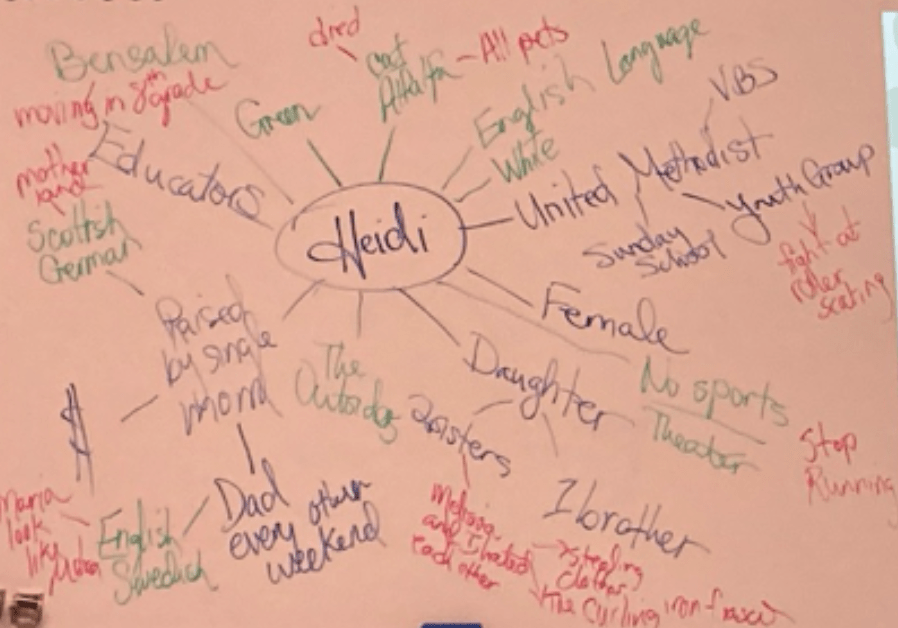 Bensalem
moving in 8th grade
Educators
Green
died
cat
Alfalfa - All pets
English Language
White
United Methodist
VBS
Sunday
School
Youth Group
fight at
roller
scating
mother
land
Scottish
German
Heidi
Female
No sports
Theater
Stop
Running
Raised
by single
mom
$
The
Outerdog
Daughter
2 sisters
Melissa
and I hated
each other
stealing
clothes
The curling iron fiasco
1 brother
Dad
every other
weekend
English
Swedish
Maria
look
like